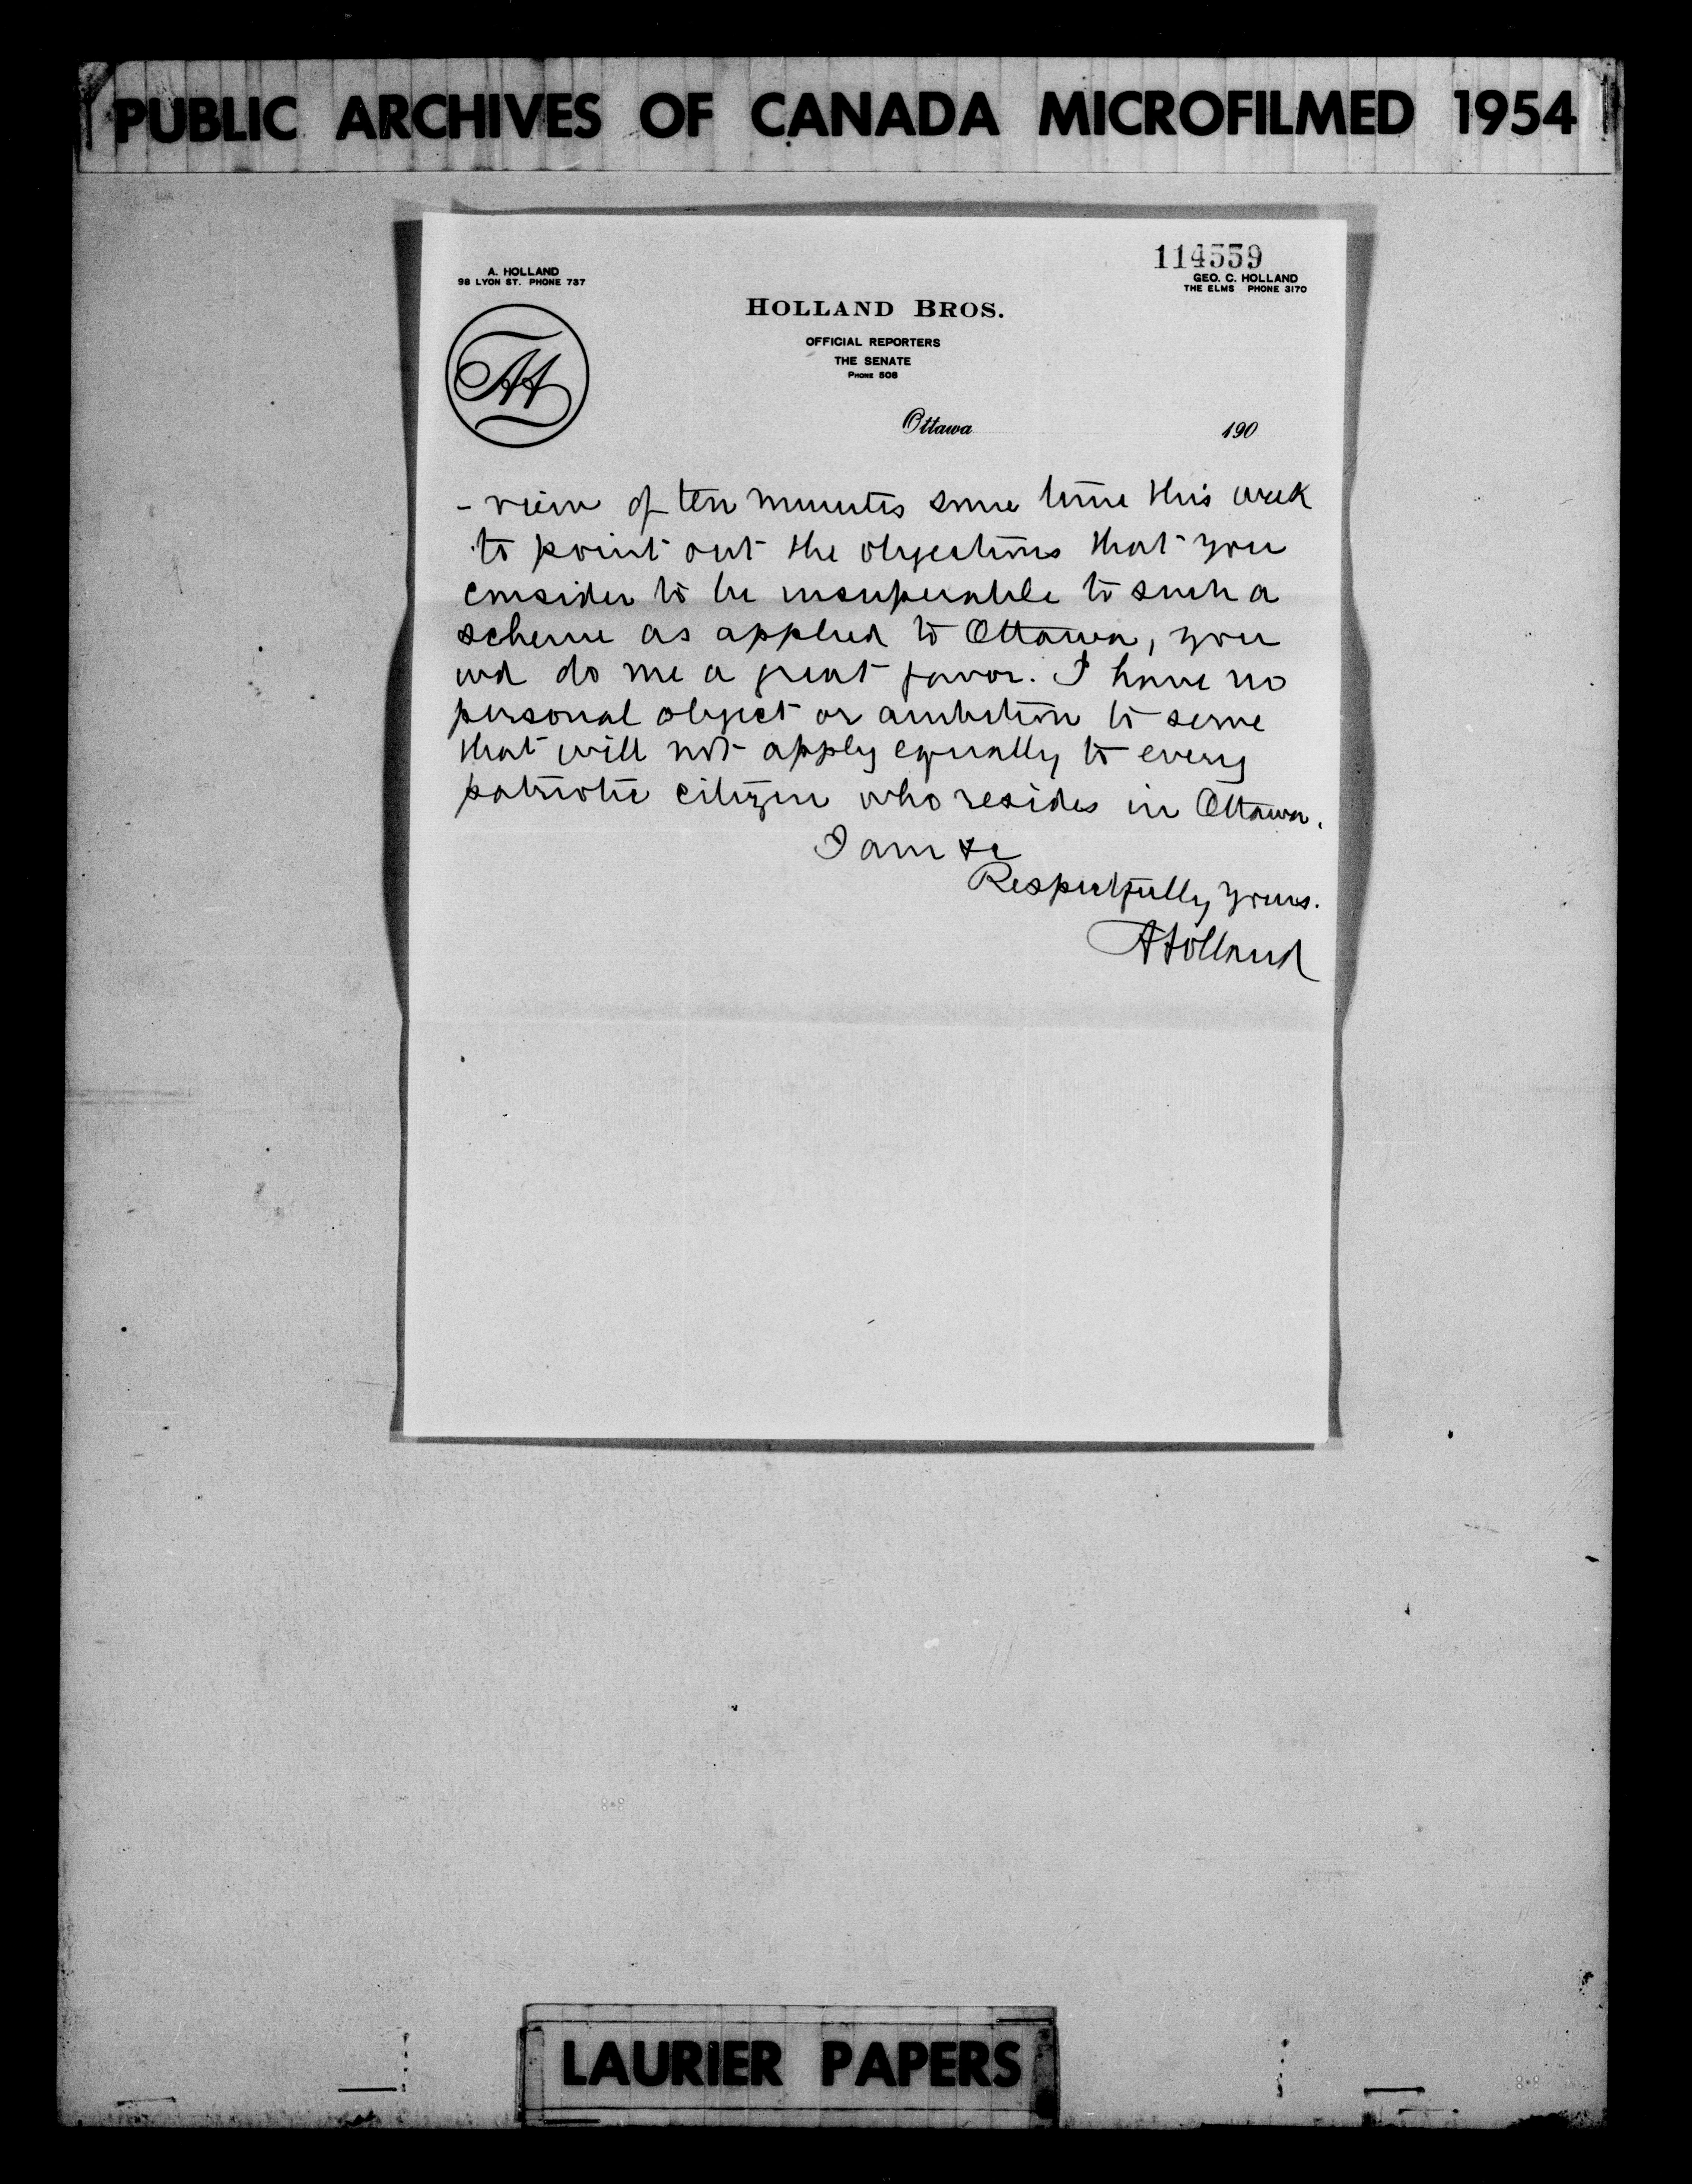 PUBLIC ARCHIVES OF CANADA MICROFILMED 1954
114559
A. HOLLAND
98 LYON ST. PHONE 737
GEO. C. HOLLAND
THE ELMS PHONE 3170
HOLLAND BROS.
OFFICIAL REPORTERS
THE SENATE
PHONE 508
AH
Ottawa 190
- view of ten minutes some time this week
to point out the objections that you
consider to be insuperable to such a
scheme as applied to Ottawa, you
wd do me a great favor. I have no
personal object or ambition to serve
that will not apply equally to every
patriotic citizen who resides in Ottawa.
I am &c
Respectfully yours.
A Holland
LAURIER PAPERS